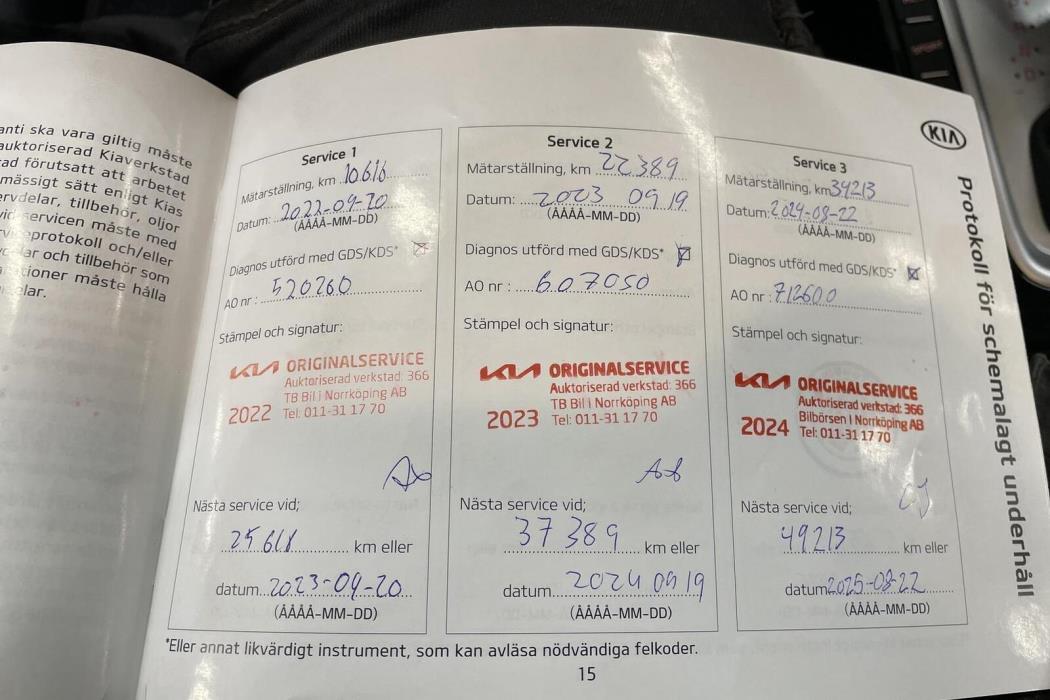 anti ska vara giltig måste
auktoriserad Kiaverkstad
ad förutsatt att arbetet
mässigt sätt enligt Kias
ervdelar, tillbehör, oljor
vid servicen måste med
eprotokoll och/eller
ar och tillbehör som
tioner måste hålla
elar.
KIA
Protokoll för schemalagt underhåll
Service 1
Mätarställning, km 10616
Datum: 2022-09-20
(ÅÅÅÅ-MM-DD)
Diagnos utförd med GDS/KDS*
AO nr : 520260
Stämpel och signatur:
KIA ORIGINALSERVICE
Auktoriserad verkstad: 366
TB Bil i Norrköping AB
2022 Tel: 011-31 17 70
Nästa service vid;
25618 km eller
datum 2023-09-20
(ÅÅÅÅ-MM-DD)
Service 2
Mätarställning, km 22389
Datum: 2023 09 19
(ÅÅÅÅ-MM-DD)
Diagnos utförd med GDS/KDS*
AO nr : 607050
Stämpel och signatur:
KIA ORIGINALSERVICE
Auktoriserad verkstad: 366
TB Bil i Norrköping AB
2023 Tel: 011-31 17 70
Nästa service vid;
37389 km eller
datum 2024 09 19
(ÅÅÅÅ-MM-DD)
Service 3
Mätarställning, km 34213
Datum: 2024-08-22
(ÅÅÅÅ-MM-DD)
Diagnos utförd med GDS/KDS*
AO nr : 712600
Stämpel och signatur:
KIA ORIGINALSERVICE
Auktoriserad verkstad: 366
Bilbörsen i Norrköping AB
2024 Tel: 011-31 17 70
Nästa service vid;
49213 km eller
datum 2025-08-22
(ÅÅÅÅ-MM-DD)
*Eller annat likvärdigt instrument, som kan avläsa nödvändiga felkoder.
15